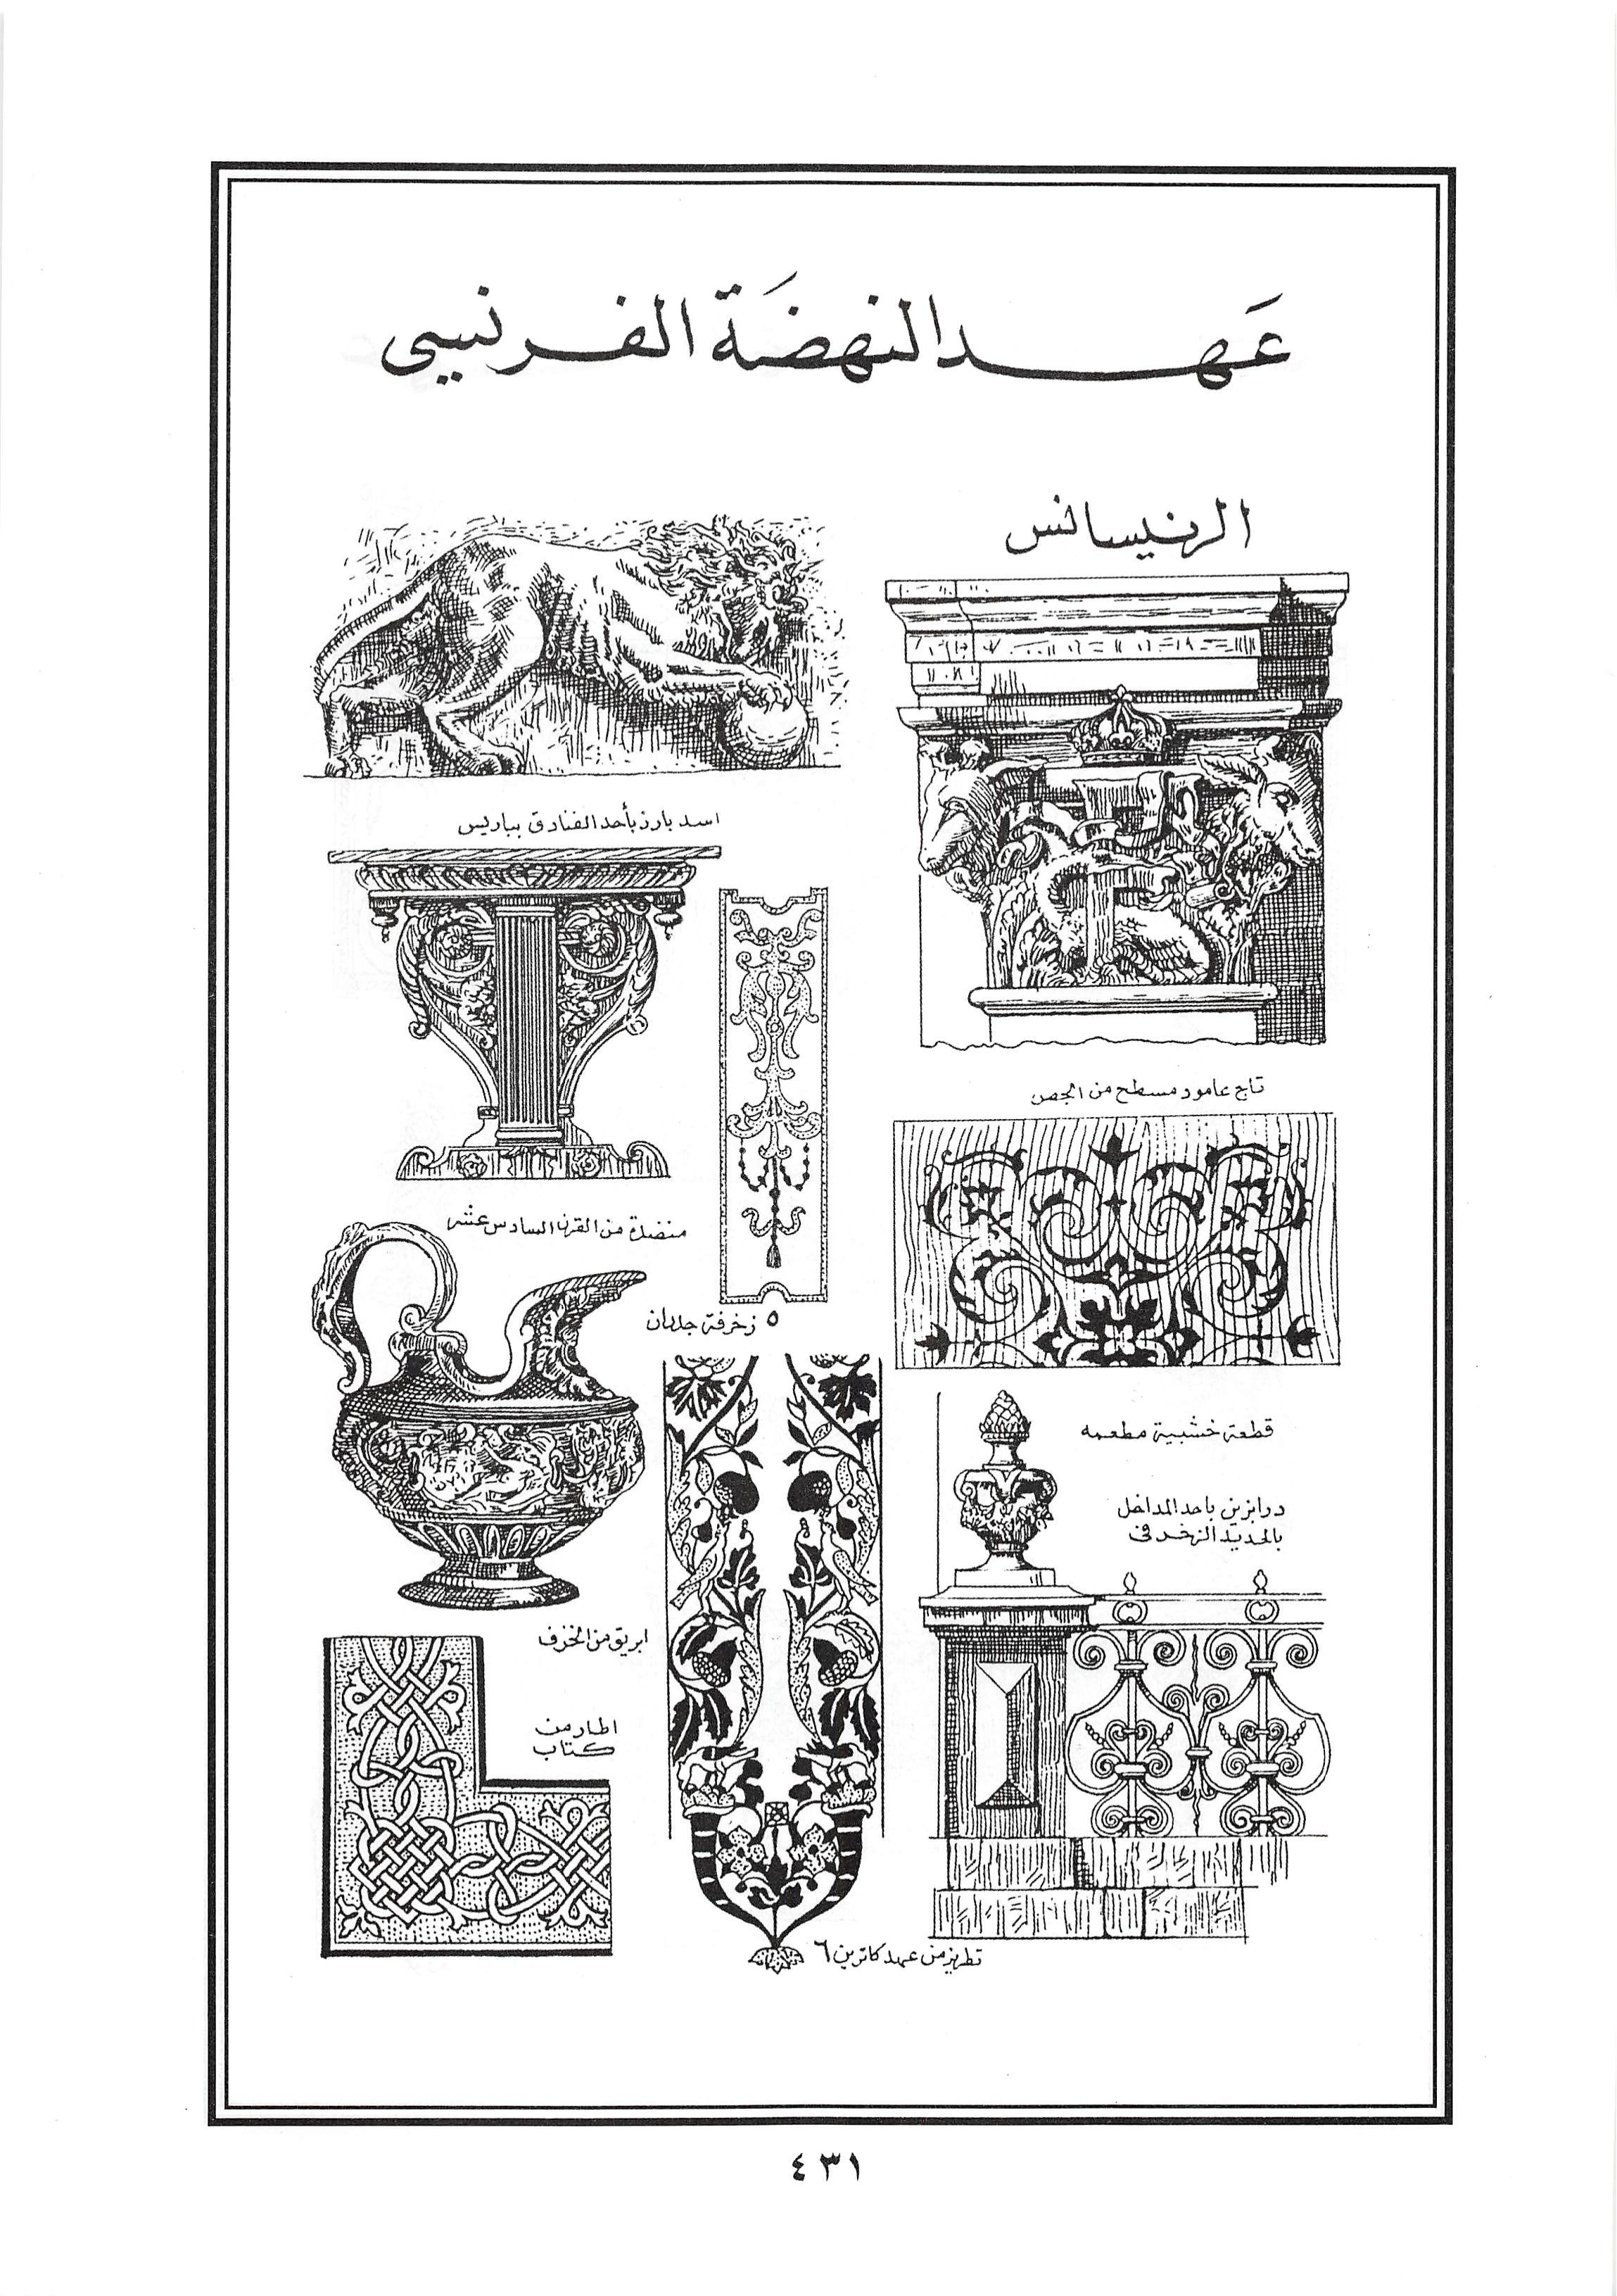 عَهد النهضَة الفرنسي
الرنيسانس
اسد بارز بأحد الفنادق بباريس
تاج عامود مسطح من الجص
منضدة من القرن السادس عشر
٥ زخرفة جدران
قطعة خشبية مطعمه
درابزين باحد المداخل
بالحديد الزخرفى
ابريق من الخزف
اطار من
كتاب
تطريز من عهد كاترين ٦
٤٣١